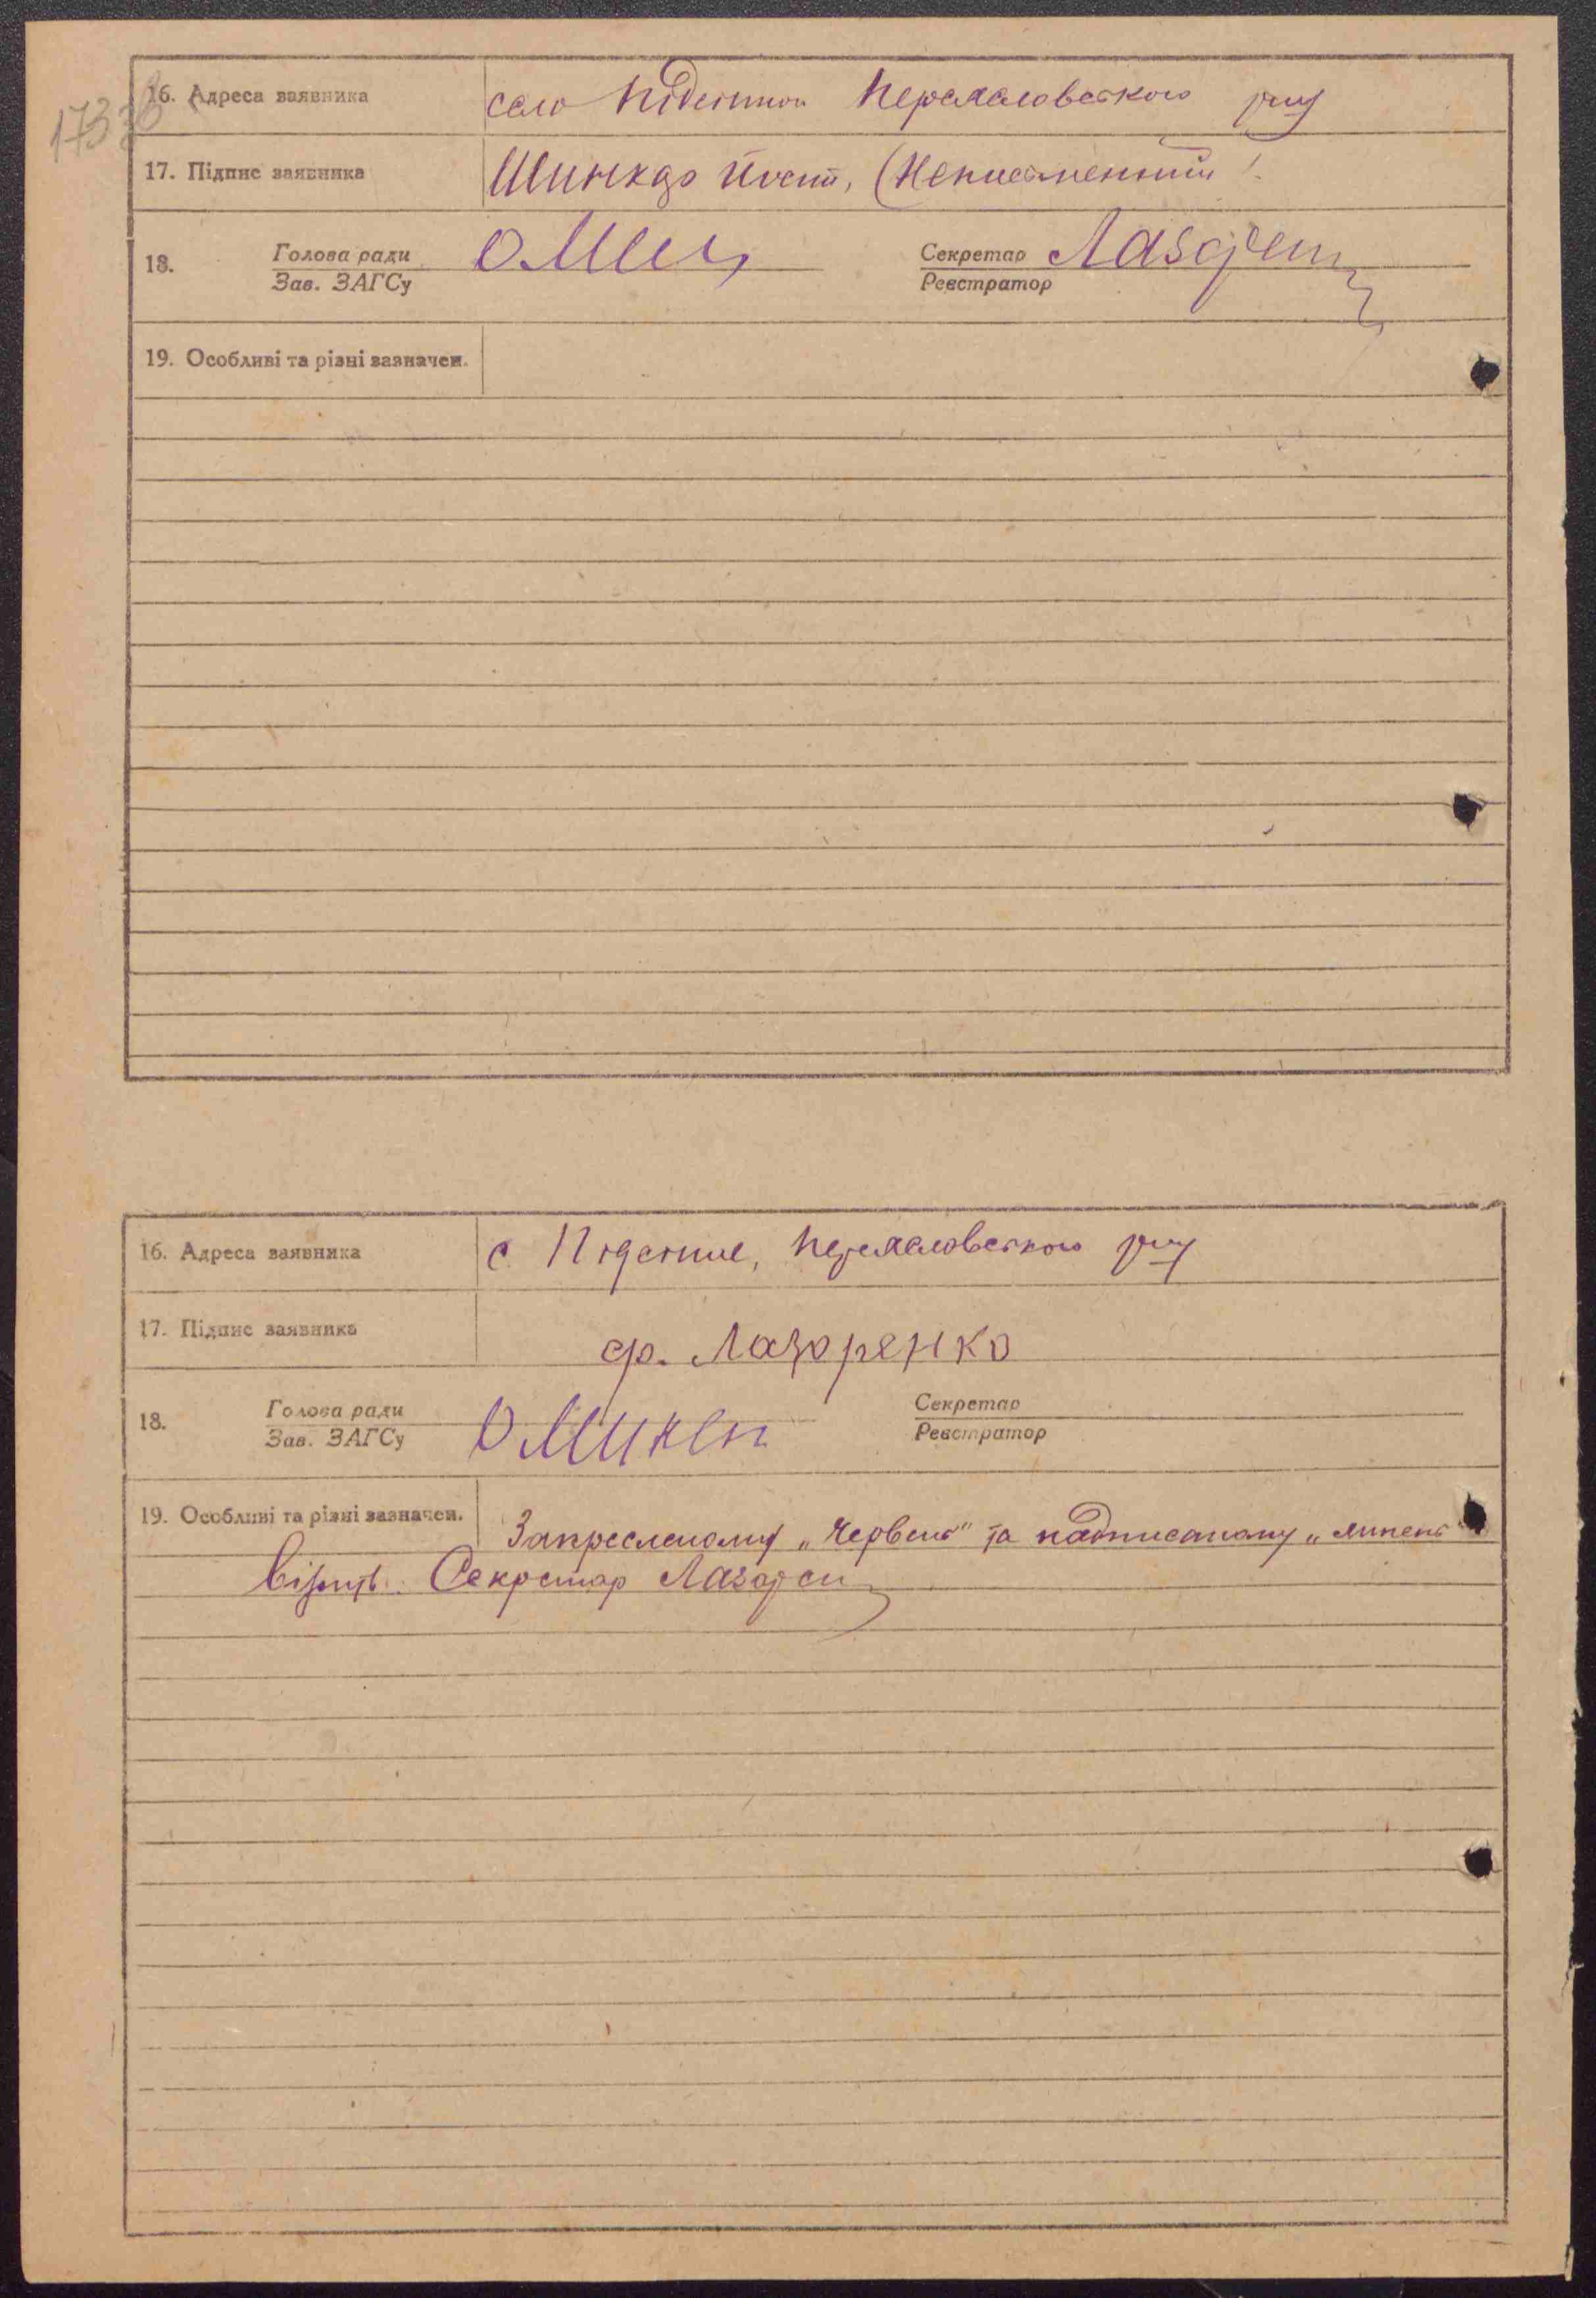 16. Адреса заявника село Підсинне Перемаловського р-ну
17. Підпис заявника Шинкар (Неписьменний).
18. Голова ради Секретар Лазорен
Зав. ЗАГСу Реєстратор
19. Особливі та різні зазначен.
16. Адреса заявника с. Перемаловського р-ну
17. Підпис заявника ф. Лазоренко
18. Голова ради Секретар
Зав. ЗАГСу Реєстратор
19. Особливі та різні зазначен. Закресленому „Червень" та надписаному „липень"
вірить. Секретар Лазорен